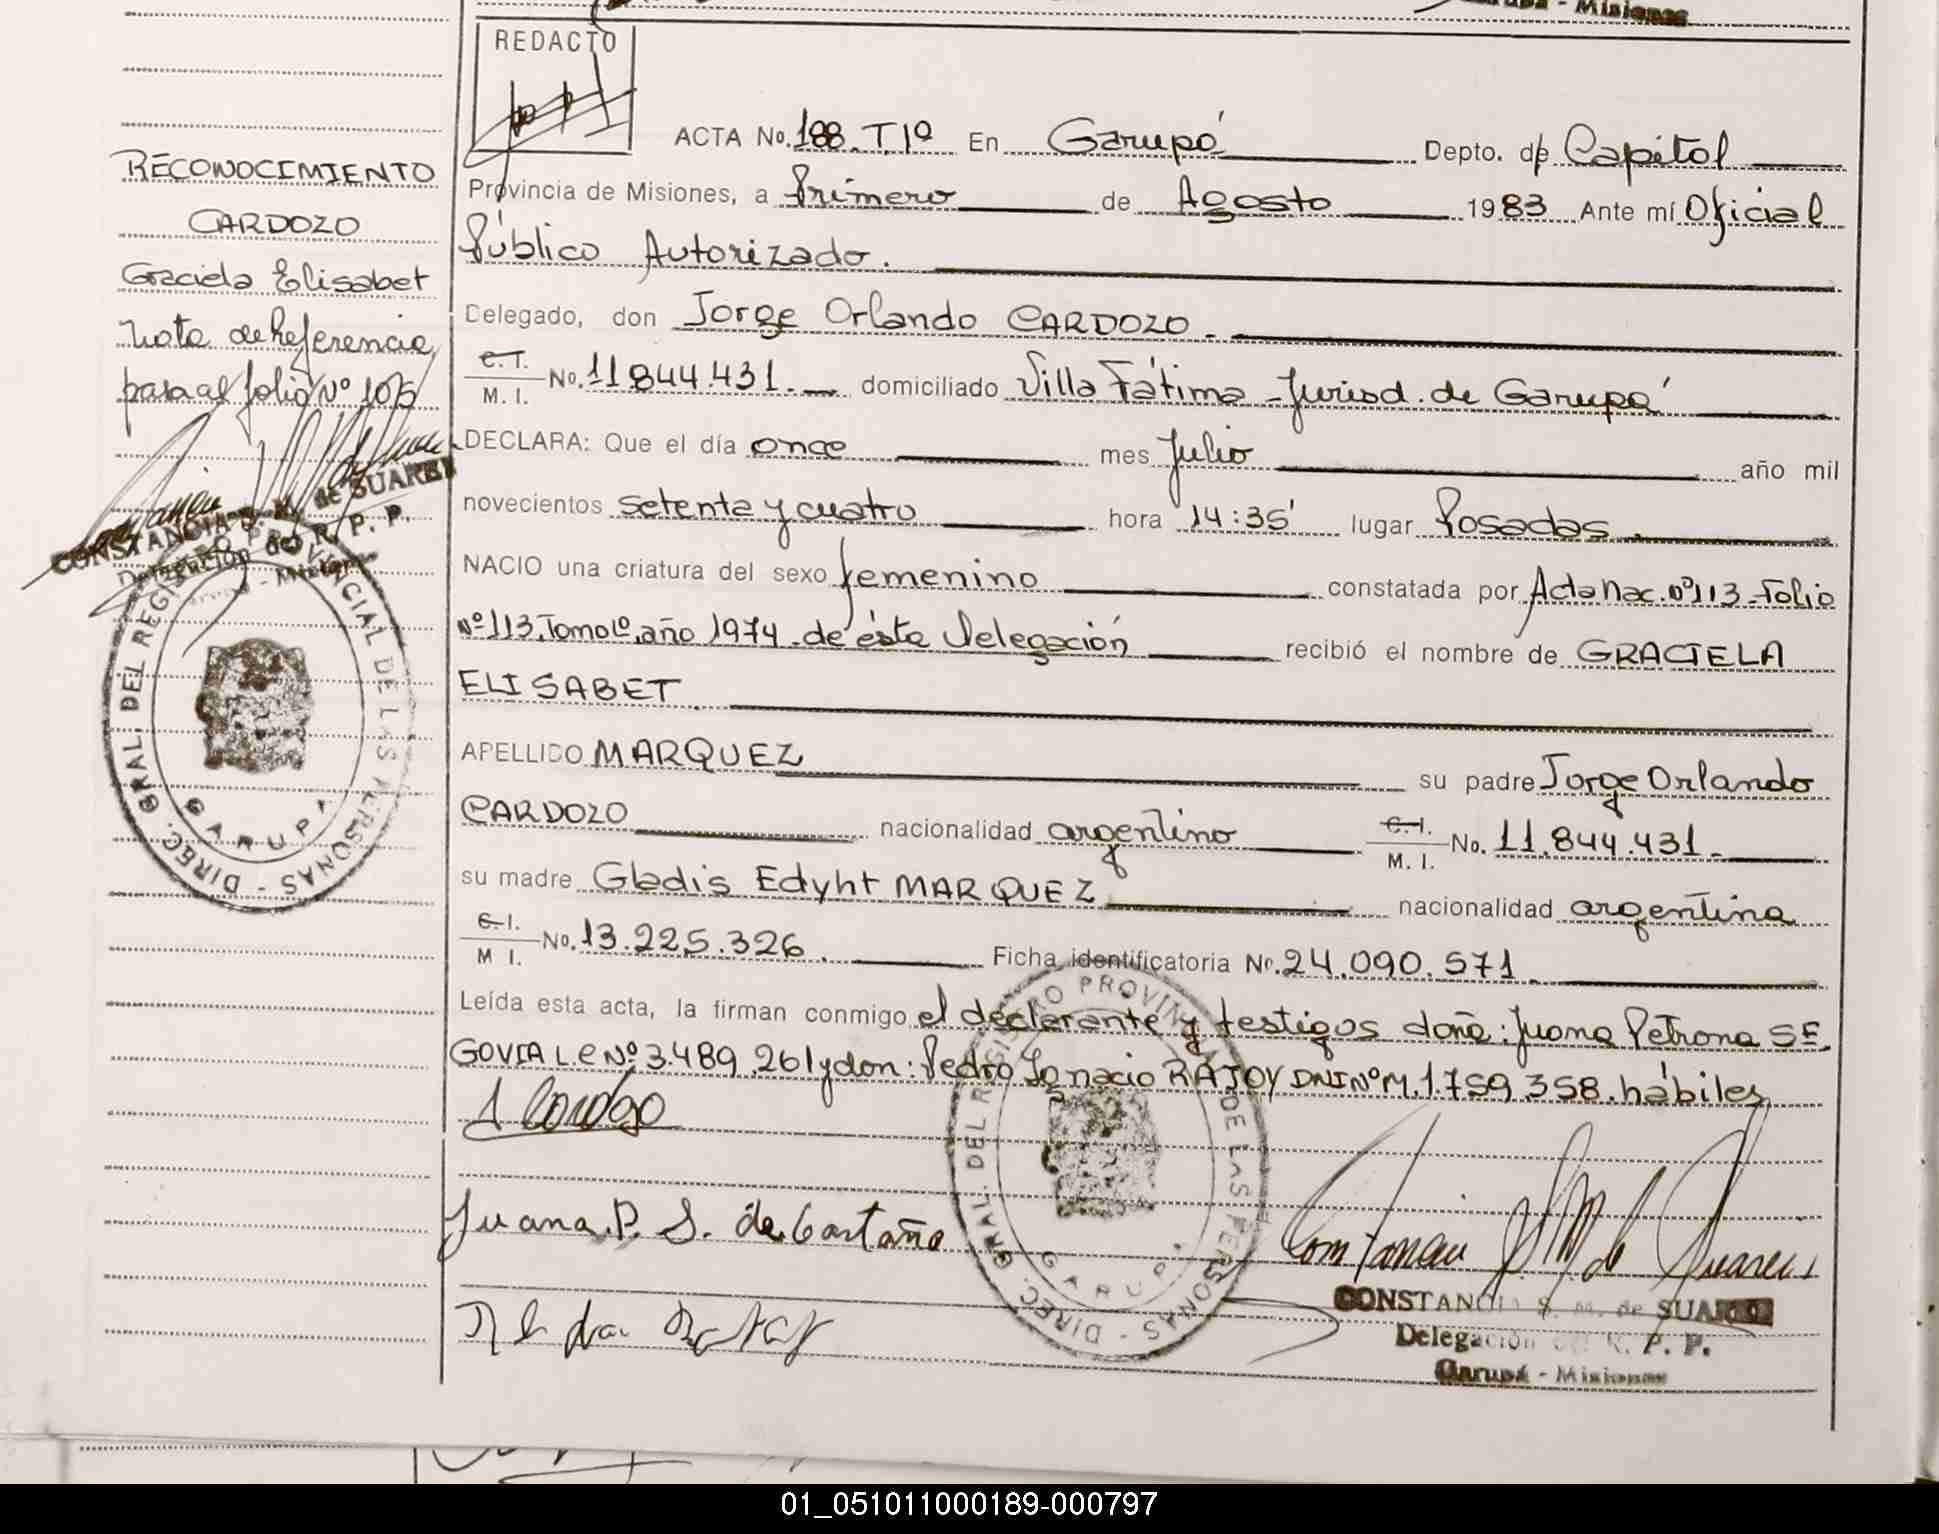 - Misiones
REDACTO
ACTA No. 188. T1º En Garupá Depto. de Capital
Provincia de Misiones, a Primero de Agosto 1983 Ante mí Oficial
Público Autorizado.
Delegado, don Jorge Orlando CARDOZO.
C.I. / M. I. No. 11.844.431. domiciliado Villa Fátima - Jurisd. de Garupá
DECLARA: Que el día once mes Julio año mil
novecientos setenta y cuatro hora 14:35' lugar Posadas.
NACIO una criatura del sexo femenino constatada por Acta Nac. nº 113 - Folio
Nº 113, Tomo 1º, año 1974 - de ésta Delegación recibió el nombre de GRACIELA
ELISABET
APELLIDO MARQUEZ su padre Jorge Orlando
CARDOZO nacionalidad argentino C.I. / M. I. No. 11.844.431.
su madre Gladis Edyht MARQUEZ nacionalidad argentina
C.I. / M I. No. 13.225.326. Ficha identificatoria Nº. 24.090.571
Leída esta acta, la firman conmigo el declarante y testigos doña: Juana Petrona SE
GOVIA LC Nº 3.489.261 y don: Pedro Ignacio RAJOY DNI Nº M. 1.759.358. hábiles
J Cardozo
Juana. P. S. de Castaño
Constancia S M de Suarez
CONSTANCIA S. M. de SUAREZ
Delegación del R. P. P.
Garupá - Misiones
DIREC. GRAL. DEL REGISTRO PROVINCIAL DE LAS PERSONAS -
GARUPA
RECONOCIMIENTO
CARDOZO
Graciela Elisabet
Nota de Referencia
pasa al folio Nº 105
CONSTANCIA S. M. de SUAREZ
Delegación del R. P. P.
Garupá - Misiones
DIREC. GRAL. DEL REGISTRO PROVINCIAL DE LAS PERSONAS -
GARUPA
01_051011000189-000797